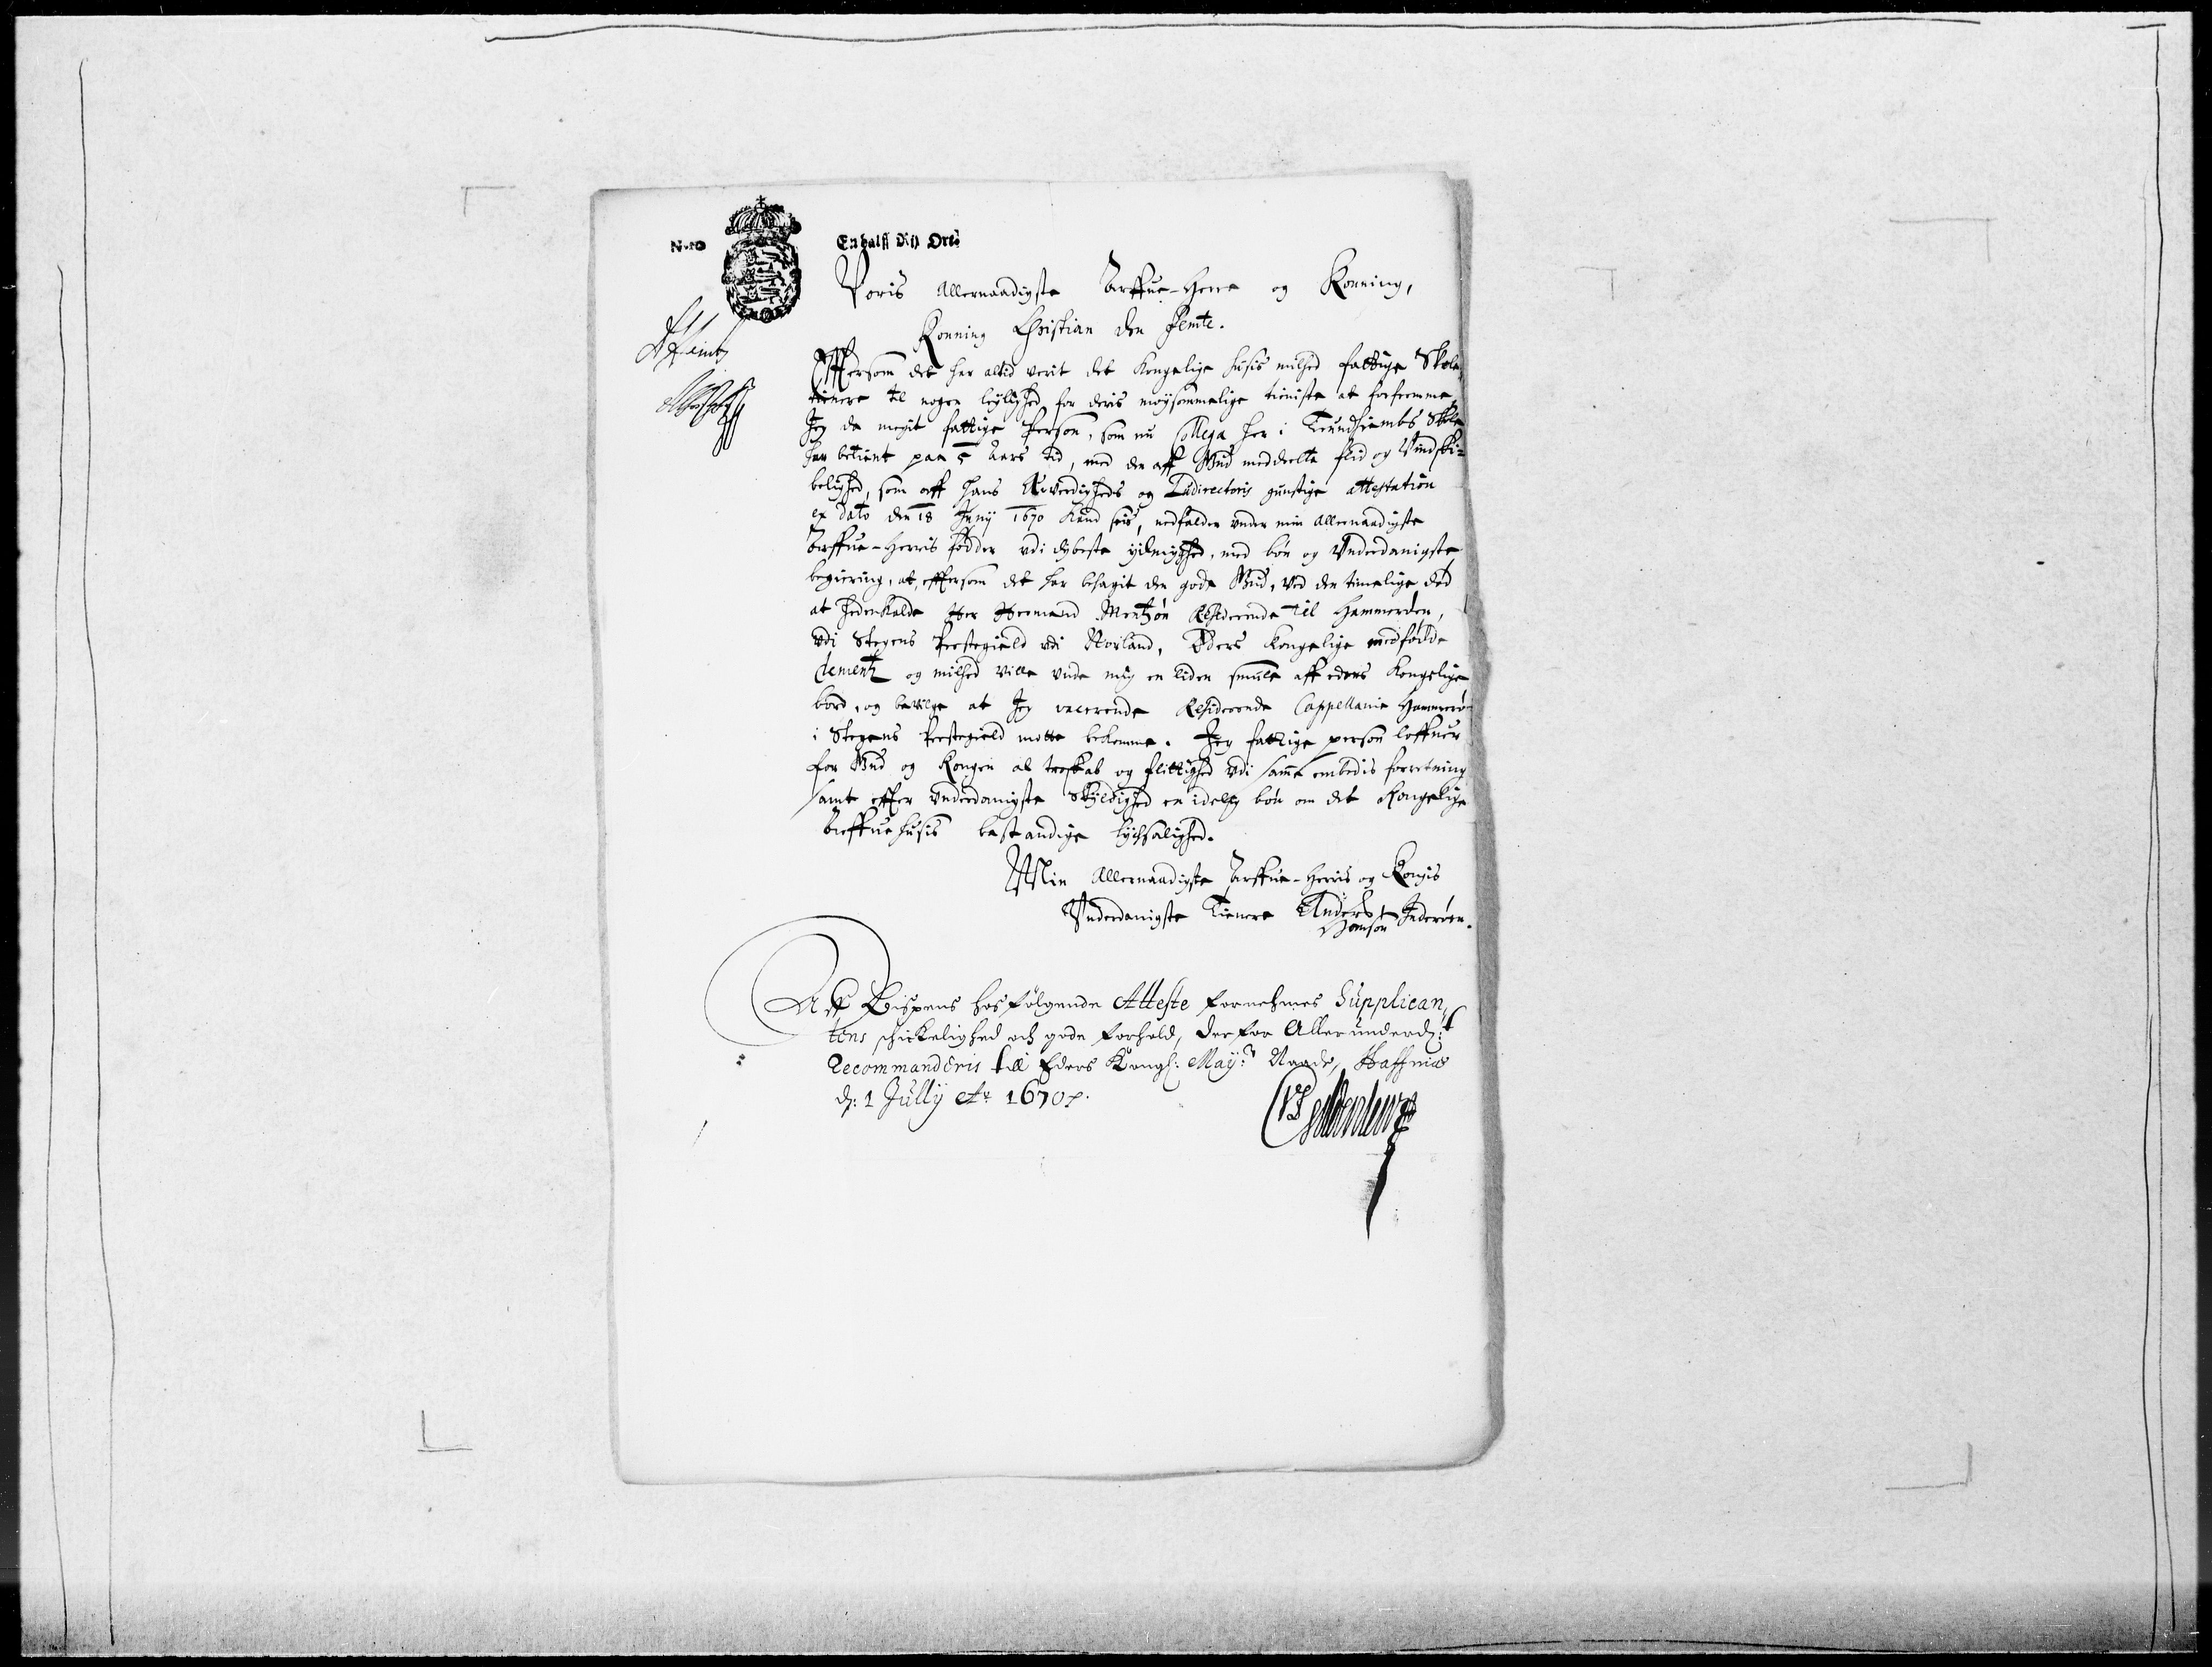 En halff Rix Ort
Voris Allernaadigste Arffue-Herre og Konning,
Konning Christian den Femte.
Effersom det har altid verit det Kongelige husis milhed fattige Skole-
tienere til nogen leylighed for deris moysommelige tieniste at forfremme,
Jeg da megit fattige Person, som nu Collega her i Trundhiembs Skole
har betient paa 5 Aars tid, med den aff Gud meddeelte flid og Vindski-
belighed, som aff Hans Ærverdigheds og Ludirectoris gunstige attestation
ex dato den 18 Junij 1670 kand seis, nedfalder under min Allernaadigste
Arffue-Herris fødder udi dybeste ydmyghed, med bøn og Underdanigste
begiering, at, effersom det har behagit den gode Gud, ved den timelige død
at hedenkalde Her Hermand Mentzøn Residerende til Hammerøen,
udi Stegens Prestegield udi Norland, Eders Kongelige medfødde
Clementz og milhed ville unde mig en liden smule aff eders Kongelige
bord, og bevilge at Jeg vaccerende Residerende Cappellanie Hammerø
i Stegens Prestegield motte bekomme. Jeg fattige person loffuer
for Gud og Kongen al troskab og flittighed udi samme embedis forretning
samt effter underdanigste Skyldighed en idelig bøn om det Kongelige
Arffue husis bestandige lychsalighed.
Min Allernaadigste Arffue-Herris og Kongis
Underdanigste Tienere Anders Inderøen.
Hansøn
Aff Bispens hosfølgende Atteste fornehmes Supplican-
tens schickelighed och gode forhold, derfor Allerunderd:t
Recommanderis till Eders Kongl: May:ts Naade, Haffniæ
d: 1 Jully Ao 1670.